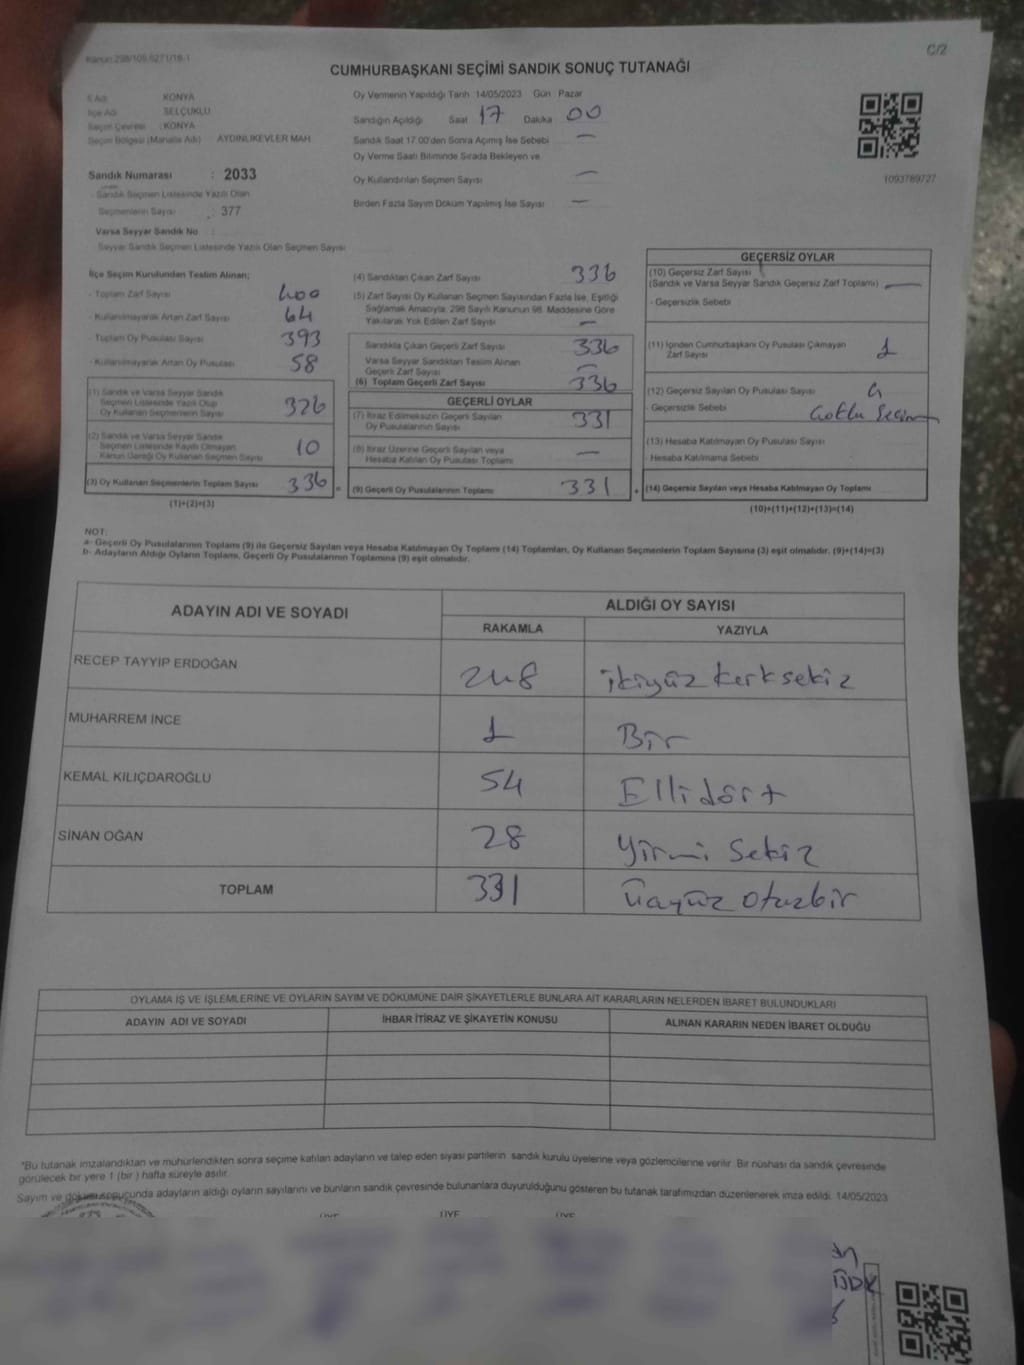 Kanun:298/105,6271/18-1
C/2
CUMHURBAŞKANI SEÇİMİ SANDIK SONUÇ TUTANAĞI
İl Adı : KONYA
İlçe Adı : SELÇUKLU
Seçim Çevresi : KONYA
Seçim Bölgesi (Mahalle Adı) : AYDINLIKEVLER MAH.
Sandık Numarası : 2033
- Sandık Seçmen Listesinde Yazılı Olan
Seçmenlerin Sayısı : 377
Varsa Seyyar Sandık No
- Seyyar Sandık Seçmen Listesinde Yazılı Olan Seçmen Sayısı
Oy Vermenin Yapıldığı Tarih :14/05/2023 Gün : Pazar
Sandığın Açıldığı Saat 17 Dakika 00
Sandık Saat 17:00'den Sonra Açılmış İse Sebebi —
Oy Verme Saati Bitiminde Sırada Bekleyen ve
Oy Kullandırılan Seçmen Sayısı —
Birden Fazla Sayım Döküm Yapılmış İse Sayısı —
1093789727
İlçe Seçim Kurulundan Teslim Alınan;
- Toplam Zarf Sayısı 400
- Kullanılmayarak Artan Zarf Sayısı 64
- Toplam Oy Pusulası Sayısı 393
- Kullanılmayarak Artan Oy Pusulası 58
(1) Sandık ve Varsa Seyyar Sandık
Seçmen Listesinde Yazılı Olup
Oy Kullanan Seçmenlerin Sayısı 326
(2) Sandık ve Varsa Seyyar Sandık
Seçmen Listesinde Kayıtlı Olmayan
Kanun Gereği Oy Kullanan Seçmen Sayısı 10
(3) Oy Kullanan Seçmenlerin Toplam Sayısı 336 =
(1)+(2)=(3)
(4) Sandıktan Çıkan Zarf Sayısı 336
(5) Zarf Sayısı Oy Kullanan Seçmen Sayısından Fazla İse, Eşitliği
Sağlamak Amacıyla, 298 Sayılı Kanunun 98. Maddesine Göre
Yakılarak Yok Edilen Zarf Sayısı —
Sandıkta Çıkan Geçerli Zarf Sayısı 336
Varsa Seyyar Sandıktan Teslim Alınan
Geçerli Zarf Sayısı —
(6) Toplam Geçerli Zarf Sayısı 336
GEÇERLİ OYLAR
(7) İtiraz Edilmeksizin Geçerli Sayılan
Oy Pusulalarının Sayısı 331
(8) İtiraz Üzerine Geçerli Sayılan veya
Hesaba Katılan Oy Pusulası Toplamı —
(9) Geçerli Oy Pusulalarının Toplamı 331 +
GEÇERSİZ OYLAR
(10) Geçersiz Zarf Sayısı
(Sandık ve Varsa Seyyar Sandık Geçersiz Zarf Toplamı) —
- Geçersizlik Sebebi
(11) İçinden Cumhurbaşkanı Oy Pusulası Çıkmayan
Zarf Sayısı 1
(12) Geçersiz Sayılan Oy Pusulası Sayısı 4
- Geçersizlik Sebebi
(13) Hesaba Katılmayan Oy Pusulası Sayısı
- Hesaba Katılmama Sebebi
(14) Geçersiz Sayılan veya Hesaba Katılmayan Oy Toplamı
(10)+(11)+(12)+(13)=(14)
NOT:
a- Geçerli Oy Pusulalarının Toplamı (9) ile Geçersiz Sayılan veya Hesaba Katılmayan Oy Toplamı (14) Toplamları, Oy Kullanan Seçmenlerin Toplam Sayısına (3) eşit olmalıdır. (9)+(14)=(3)
b- Adayların Aldığı Oyların Toplamı, Geçerli Oy Pusulalarının Toplamına (9) eşit olmalıdır.
ADAYIN ADI VE SOYADI
ALDIĞI OY SAYISI
RAKAMLA YAZIYLA
RECEP TAYYİP ERDOĞAN 248 ikiyüz kerk sekiz
MUHARREM İNCE 1 Bir
KEMAL KILIÇDAROĞLU 54 Ellidört
SİNAN OĞAN 28 Yirmi Sekiz
TOPLAM 331 Üçyüz otuzbir
OYLAMA İŞ VE İŞLEMLERİNE VE OYLARIN SAYIM VE DÖKÜMÜNE DAİR ŞİKAYETLERLE BUNLARA AİT KARARLARIN NELERDEN İBARET BULUNDUKLARI
ADAYIN ADI VE SOYADI İHBAR İTİRAZ VE ŞİKAYETİN KONUSU ALINAN KARARIN NEDEN İBARET OLDUĞU
*Bu tutanak imzalandıktan ve mühürlendikten sonra seçime katılan adayların ve talep eden siyasi partilerin sandık kurulu üyelerine veya gözlemcilerine verilir. Bir nüshası da sandık çevresinde
görülecek bir yere 1 (bir ) hafta süreyle asılır.
Sayım ve döküm sonucunda adayların aldığı oyların sayılarını ve bunların sandık çevresinde bulunanlara duyurulduğunu gösteren bu tutanak tarafımızdan düzenlenerek imza edildi. 14/05/2023
ÜYE ÜYE ÜYE